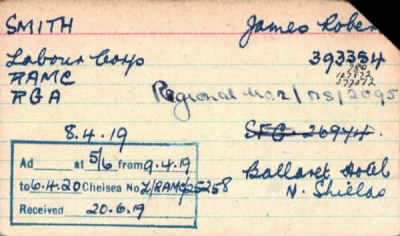 SMITH James Rober
Labour Corps 393334
RAMC
RGA Regional No 2/MS/2095
8.4.19 SFC 26974.
Ad at 5/6 from 9.4.19
to 6.4.20 Chelsea No 2/RAMC/25258
Received 20.6.19
Ballaret Hotel
N. Shields